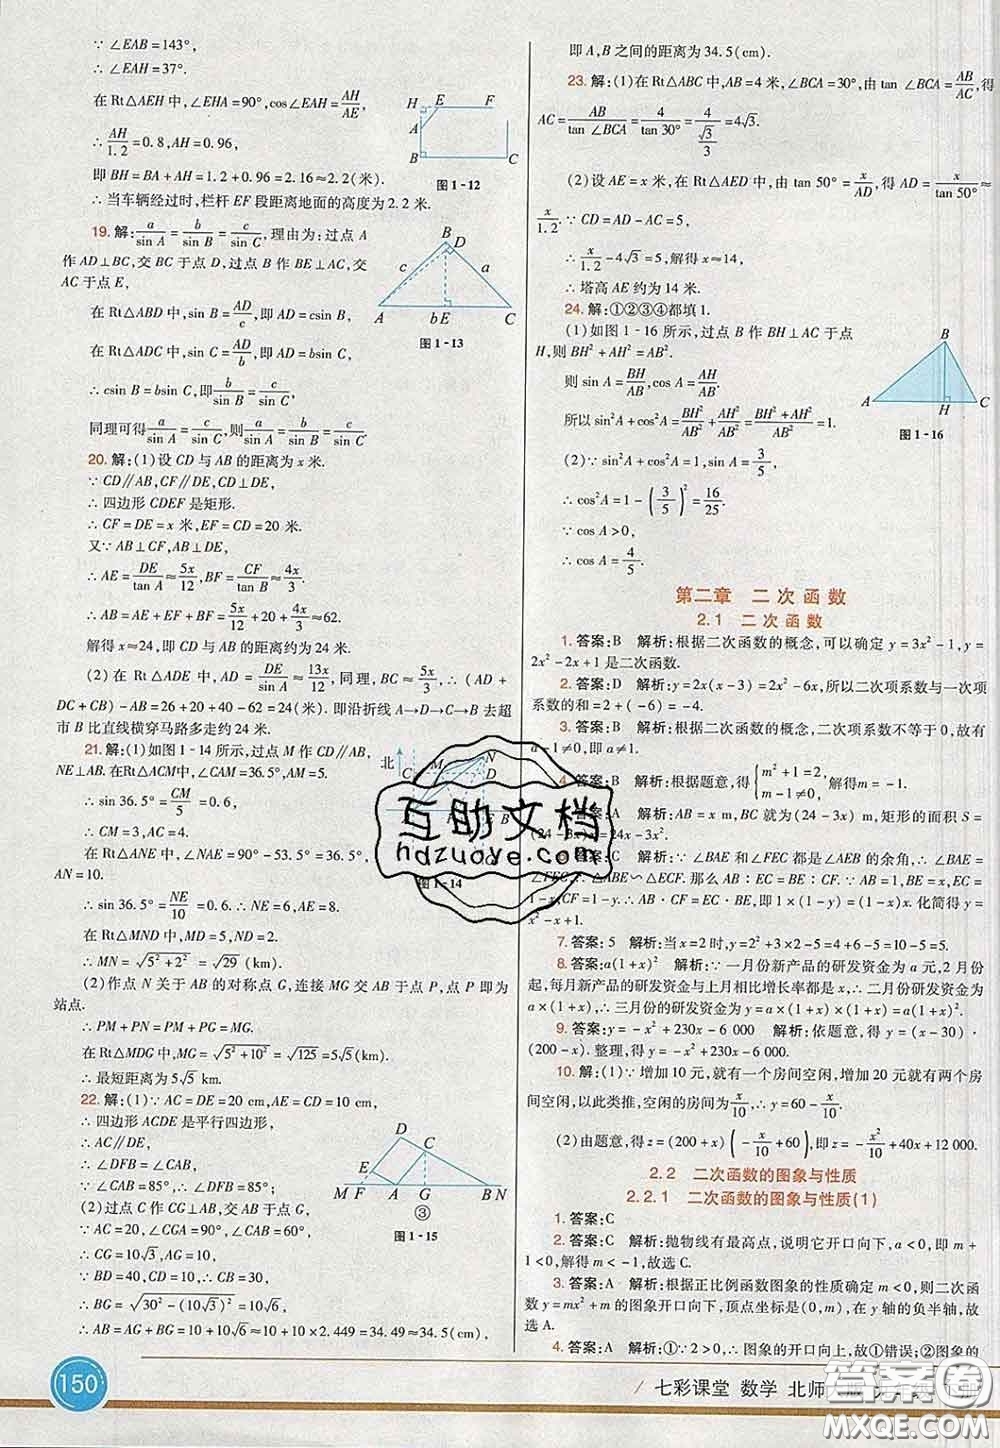 ∵ ∠EAB=143°,
∴ ∠EAH=37°.
在 Rt△AEH 中,∠EHA=90°,cos∠EAH=AH/AE,
∴ AH/1.2=0.8,AH=0.96,
即 BH=BA+AH=1.2+0.96=2.16≈2.2(米).
∴ 当车辆经过时,栏杆 EF 段距离地面的高度为 2.2 米.
H E F
A
B C
图 1-12
19. 解:a/sin A=b/sin B=c/sin C,理由为:过点 A
作 AD⊥BC,交 BC 于点 D,过点 B 作 BE⊥AC,交
AC 于点 E,
在 Rt△ABD 中,sin B=AD/c,即 AD=csin B,
在 Rt△ADC 中,sin C=AD/b,即 AD=bsin C,
∴ csin B=bsin C,即b/sin B=c/sin C,
同理可得a/sin A=c/sin C,则a/sin A=b/sin B=c/sin C.
B D
c a
A bE C
图 1-13
20. 解:(1)设 CD 与 AB 的距离为 x 米.
∵ CD∥AB,CF∥DE,CD⊥DE,
∴ 四边形 CDEF 是矩形.
∴ CF=DE=x 米,EF=CD=20 米.
又∵ AB⊥CF,AB⊥DE,
∴ AE=DE/tan A≈5x/12,BF=CF/tan B≈4x/3.
∴ AB=AE+EF+BF=5x/12+20+4x/3≈62.
解得 x≈24,即 CD 与 AB 的距离约为 24 米.
(2)在 Rt△ADE 中,AD=DE/sin A≈13x/12,同理,BC≈5x/3,∴ (AD+
DC+CB)-AB≈26+20+40-62=24(米).即沿折线 A→D→C→B 去超
市 B 比直线横穿马路多走约 24 米.
21. 解:(1)如图 1-14 所示,过点 M 作 CD∥AB,
NE⊥AB.在 Rt△ACM 中,∠CAM=36.5°,AM=5,
∴ sin 36.5°=CM/5=0.6,
∴ CM=3,AC=4.
在 Rt△ANE 中,∠NAE=90°-53.5°=36.5°,
AN=10.
∴ sin 36.5°=NE/10=0.6,∴ NE=6,AE=8.
在 Rt△MND 中,MD=5,ND=2.
∴ MN=√(5²+2²)=√29 (km).
(2)作点 N 关于 AB 的对称点 G,连接 MG 交 AB 于点 P,点 P 即为
站点.
∴ PM+PN=PM+PG=MG.
在 Rt△MDG 中,MG=√(5²+10²)=√125=5√5(km).
∴ 最短距离为 5√5 km.
北
图 1-14
22. 解:(1)∵ AC=DE=20 cm,AE=CD=10 cm,
∴ 四边形 ACDE 是平行四边形.
∴ AC∥DE,
∴ ∠DFB=∠CAB,
∵ ∠CAB=85°,∴ ∠DFB=85°;
(2)过点 C 作 CG⊥AB,交 AB 于点 G,
∵ AC=20,∠CGA=90°,∠CAB=60°,
∴ CG=10√3,AG=10.
∵ BD=40,CD=10,∴ CB=30.
∴ BG=√(30²-(10√3)²)=10√6.
∴ AB=AG+BG=10+10√6≈10+10×2.449=34.49≈34.5(cm),
D
C
E
M F A G B N
③
图 1-15
即 A,B 之间的距离为 34.5(cm).
23. 解:(1)在 Rt△ABC 中,AB=4 米,∠BCA=30°,由 tan ∠BCA=AB/AC,得
AC=AB/tan ∠BCA=4/tan 30°=4/(√3/3)=4√3.
(2)设 AE=x 米,在 Rt△AED 中,由 tan 50°=x/AD,得 AD=x/tan 50°≈
x/1.2.∵ CD=AD-AC=5,
∴ x/1.2-4√3=5,解得 x≈14,
∴ 塔高 AE 约为 14 米.
24. 解:①②③④都填1.
(1)如图 1-16 所示,过点 B 作 BH⊥AC 于点
H,则 BH²+AH²=AB².
则 sin A=BH/AB,cos A=AH/AB.
所以 sin²A+cos²A=BH²/AB²+AH²/AB²=(BH²+AH²)/AB²=1.
(2)∵ sin²A+cos²A=1,sin A=3/5,
∴ cos²A=1-(3/5)²=16/25.
∵ cos A>0,
∴ cos A=4/5.
B
A H C
图 1-16
第二章 二次函数
2.1 二次函数
1. 答案:B 解析:根据二次函数的概念,可以确定 y=3x²-1,y=
2x²-2x+1 是二次函数.
2. 答案:D 解析:y=2x(x-3)=2x²-6x,所以二次项系数与一次项
系数的和=2+(-6)=-4.
3. 答案:B 解析:根据二次函数的概念,二次项系数不等于 0,故有
a-1≠0,即 a≠1.
4. 答案:B 解析:根据题意,得{m²+1=2, m-1≠0,解得m=-1.
答案:A 解析:根据题意,得 AB=x m,BC 就为(24-3x) m,矩形的面积 S=
(24-3x)x=24x-3x².
答案:C 解析:∵ ∠BAE 和∠FEC 都是∠AEB 的余角,∴ ∠BAE=
∠FEC. ∴ △ABE∽△ECF. 那么 AB∶EC=BE∶CF.∵ AB=1,BE=x,EC=
1-x,CF=1-y. ∴ AB·CF=EC·BE,即 1×(1-y)=(1-x)x. 化简得 y=
x²-x+1.
7. 答案:5 解析:当 x=2时,y=2x²+2x-5+2-5=5.
8. 答案:a(1+x)² 解析:∵ 一月份新产品的研发资金为 a 元,2 月份
起,每月新产品的研发资金与上月相比增长率都是 x,∴ 二月份研发资金为
a×(1+x),∴ 三月份的研发资金为 a×(1+x)×(1+x)=a(1+x)².
9. 答案:y=-x²+230x-6 000 解析:依题意,得 y=(x-30)·
(200-x).整理,得 y=-x²+230x-6 000.
10. 解:(1)∵ 增加 10 元,就有一个房间空闲,增加 20 元就有两个房
间空闲,以此类推,空闲的房间为x/10,∴ y=60-x/10.
(2)由题意,得 z=(200+x)(-x/10+60),即z=-x²/10+40x+12 000.
2.2 二次函数的图象与性质
2.2.1 二次函数的图象与性质(1)
1. 答案:C
2. 答案:C 解析:抛物线有最高点,说明它开口向下,a<0,即 m+
1<0,解得 m<-1,故选 C.
3. 答案:A 解析:根据正比例函数图象的性质确定 m<0,则二次函
数 y=mx²+m 的图象开口向下,顶点坐标是(0,m),在 y 轴的负半轴,故
选 A.
4. 答案:A 解析:①∵ 2>0,∴ 图象的开口向上,故①错误;②图象的
150
七彩课堂 数学 北师
互助文档
hdzuoye.com
答案圈
MXQE.COM